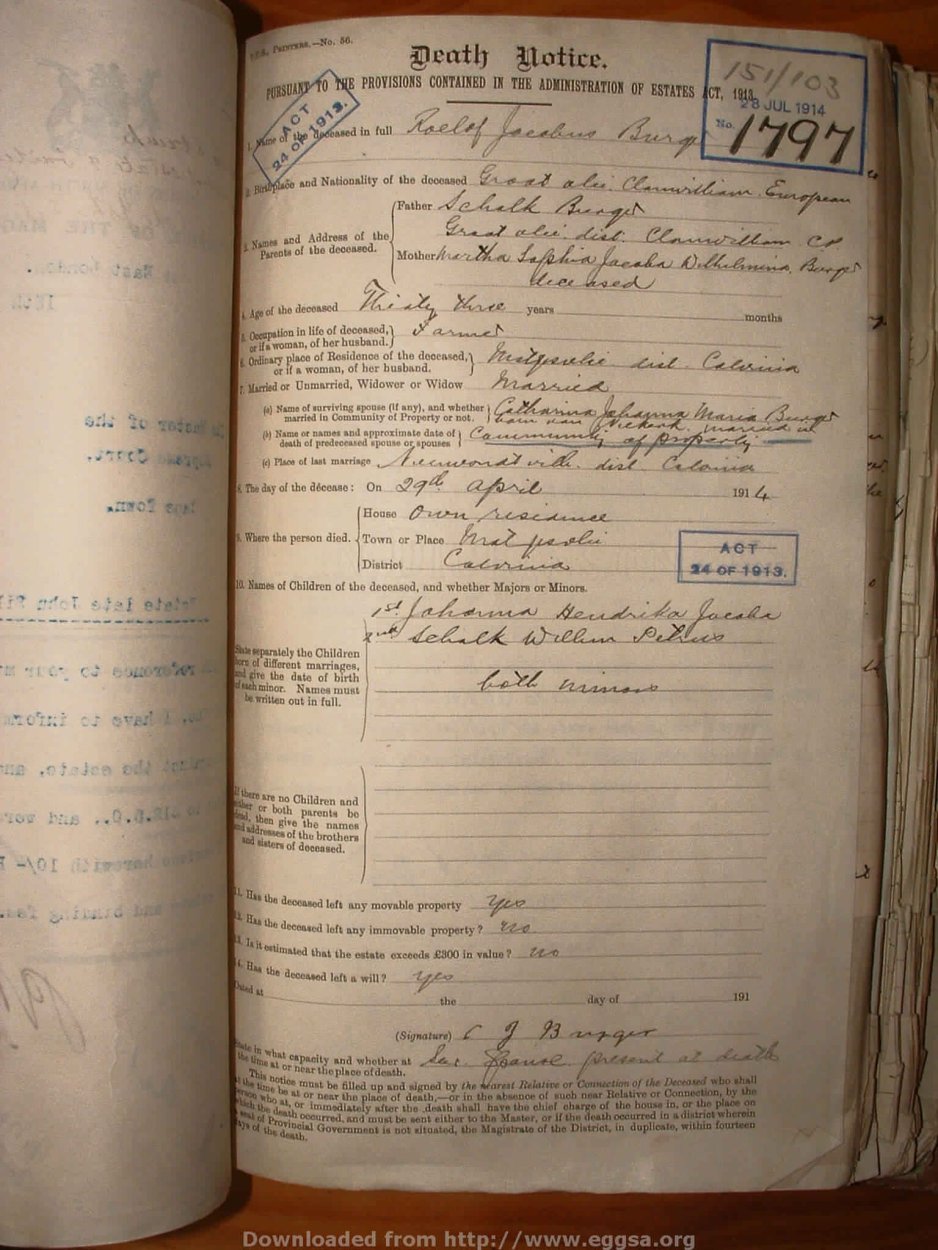 PAINTERS.—No. 56.
Death Notice.
PURSUANT TO THE PROVISIONS CONTAINED IN THE ADMINISTRATION OF ESTATES ACT, 1913.
151/103
28 JUL 1914
No. 1797
ACT
24 OF 1913.
1. Name of the deceased in full Roelof Jacobus Burger
2. Birthplace and Nationality of the deceased Clanwilliam, European
3. Names and Address of the Parents of the deceased.
Father Schalk Burger
dist. Clanwilliam CP
Mother Martha Sophia Jacoba Wilhelmina Burger
deceased
4. Age of the deceased Thirty three years months
5. Occupation in life of deceased, or if a woman, of her husband. Farmer
6. Ordinary place of Residence of the deceased, or if a woman, of her husband. dist. Calvinia
7. Married or Unmarried, Widower or Widow Married
(a) Name of surviving spouse (if any), and whether married in Community of Property or not. Catharina Johanna Maria Burger
born van married in
(b) Name or names and approximate date of death of predeceased spouse or spouses Community of property
(c) Place of last marriage dist. Calvinia
8. The day of the décease: On 29th April 1914
9. Where the person died.
House Own residence
Town or Place
District Calvinia
ACT
24 OF 1913.
10. Names of Children of the deceased, and whether Majors or Minors.
1st Johanna Hendrika Jacoba
2nd Schalk Willem Petrus
State separately the Children born of different marriages, and give the date of birth of each minor. Names must be written out in full.
both minors
If there are no Children and either or both parents be dead, then give the names and addresses of the brothers and sisters of deceased.
11. Has the deceased left any movable property yes
12. Has the deceased left any immovable property? no
13. Is it estimated that the estate exceeds £300 in value? no
14. Has the deceased left a will? yes
Dated at the day of 191
(Signature) C J Burger
State in what capacity and whether at the time at or near the place of death. Sur. Spouse present at death
This notice must be filled up and signed by the nearest Relative or Connection of the Deceased who shall
at the time be at or near the place of death,—or in the absence of such near Relative or Connection, by the
person who at, or immediately after the death shall have the chief charge of the house in, or the place on
which the death occurred, and must be sent either to the Master, or if the death occurred in a district wherein
a seat of Provincial Government is not situated, the Magistrate of the District, in duplicate, within fourteen
days of the death.
Downloaded from http://www.eggsa.org